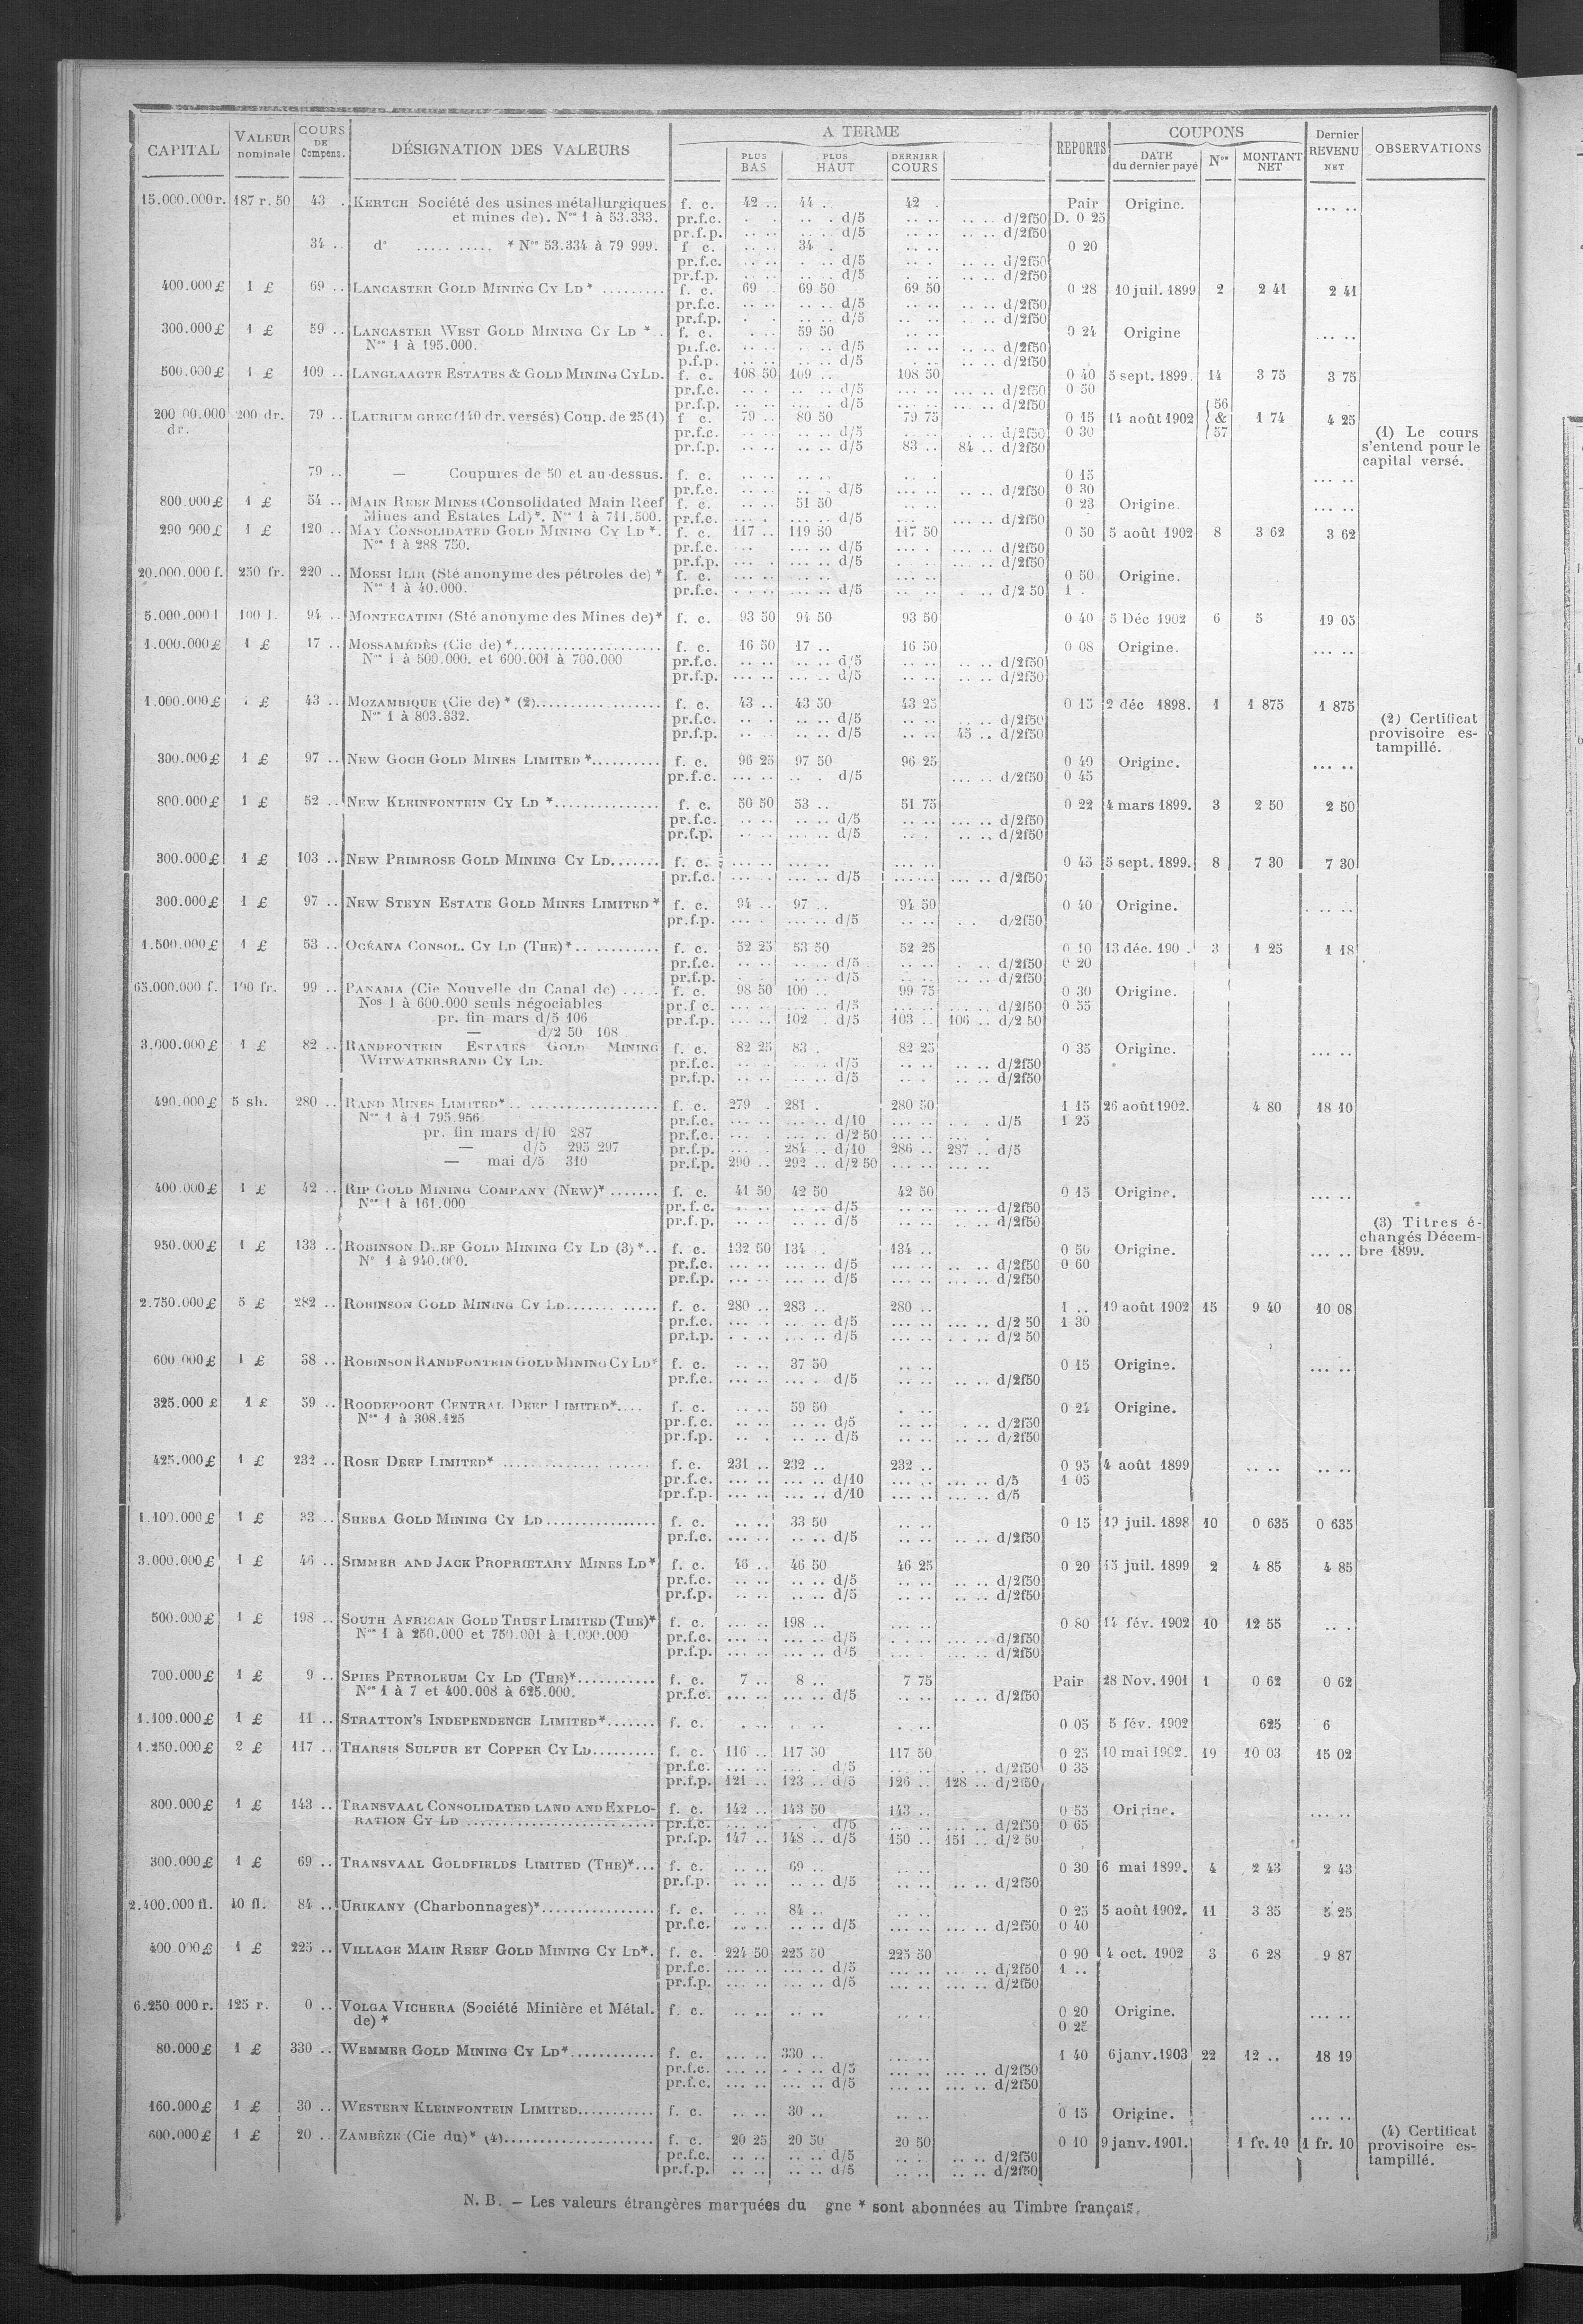 CAPITAL VALEUR nominale COURS DE Compens. DÉSIGNATION DES VALEURS A TERME PLUS BAS PLUS HAUT DERNIER COURS REPORTS COUPONS DATE du dernier payé Nos MONTANT NET Dernier REVENU NET OBSERVATIONS
15.000.000 r. 187 r. 50 43 . KERTCH Société des usines métallurgiques f. c. 42 .. 44 . 42 . Pair Origine. ... ..
et mines de). Nos 1 à 53.333. pr.f.c. d/5 d/2f50 D. 0 25
pr.f.p. d/5 d/2f50
34 .. d° ..... ..... * Nos 53.334 à 79 999. f c. 34 . 0 20
pr.f.c. d/5 d/2f50
pr.f.p. d/5 d/2f50
400.000 £ 1 £ 69 .. LANCASTER GOLD MINING CY LD * ......... f. c. 69 .. 69 50 69 50 0 28 10 juil. 1899 2 2 41 2 41
pr.f.c. d/5 d/2f50
pr.f.p. d/5 d/2f50
300.000 £ 1 £ 59 .. LANCASTER WEST GOLD MINING CY LD *.. f. c. 59 50 0 24 Origine ... ..
Nos 1 à 195.000. pr.f.c. d/5 d/2f50
p.f.p. d/5 d/2f50
500.000 £ 1 £ 109 .. LANGLAAGTE ESTATES & GOLD MINING CY LD. f. c. 108 50 109 .. 108 50 0 40 5 sept. 1899. 14 3 75 3 75
pr.f.c. d/5 d/2f50 0 50
pr.f.p. d/5 d/2f50
200 00.000 dr. 200 dr. 79 .. LAURIUM GREC (140 dr. versés) Coup. de 25 (1) f c. 79 .. 80 50 79 75 0 15 14 août 1902 56 & 57 1 74 4 25
pr.f.c. d/5 d/2f50 0 30
pr.f.p. d/5 83 .. 84 .. d/2f50
(1) Le cours
s'entend pour le
capital versé.
79 .. — Coupures de 50 et au-dessus. f. c. 0 15 ... ..
pr.f.c. d/5 d/2f50 0 30
800.000 £ 1 £ 54 .. MAIN REEF MINES (Consolidated Main Reef f. c. 51 50 0 23 Origine. ... ..
Mines and Estates Ld)*. Nos 1 à 711.500. pr.f.c. d/5 d/2f50
290 000 £ 1 £ 120 .. MAY CONSOLIDATED GOLD MINING CY LD *. f. c. 117 .. 119 50 117 50 0 50 5 août 1902 8 3 62 3 62
Nos 1 à 288 750. pr.f.c. d/5 d/2f50
pr.f.p. d/5 d/2f50
20.000.000 f. 250 fr. 220 .. MORSI ILIR (Sté anonyme des pétroles de) * f. c. 0 50 Origine.
Nos 1 à 40.000. pr.f.c. d/5 d/2 50 1 .
5.000.000 l 100 l. 94 .. MONTECATINI (Sté anonyme des Mines de)* f. c. 93 50 94 50 93 50 0 40 5 Déc 1902 6 5 19 05
1.000.000 £ 1 £ 17 .. MOSSAMÉDÈS (Cie de) *.................... f. c. 16 50 17 .. 16 50 0 08 Origine. ... ..
Nos 1 à 500.000. et 600.001 à 700.000 pr.f.c. d/5 d/2f50
pr.f.p. d/5 d/2f50
1.000.000 £ £ 43 .. MOZAMBIQUE (Cie de) * (2)................. f. c. 43 .. 43 50 43 25 0 15 2 déc 1898. 1 1 875 1 875
Nos 1 à 803.332. pr.f.c. d/5 d/2f50
pr.f.p. d/5 45 .. d/2f50
(2) Certificat
provisoire es-
tampillé.
300.000 £ 1 £ 97 .. NEW GOCH GOLD MINES LIMITED *.......... f. c. 96 25 97 50 96 25 0 40 Origine. ... ..
pr.f.c. d/5 d/2f50 0 45
800.000 £ 1 £ 52 .. NEW KLEINFONTEIN CY LD *............... f. c. 50 50 53 .. 51 75 0 22 4 mars 1899. 3 2 50 2 50
pr.f.c. d/5 d/2f50
pr.f.p. d/5 d/2f50
300.000 £ 1 £ 103 .. NEW PRIMROSE GOLD MINING CY LD....... f. c. 0 45 5 sept. 1899. 8 7 30 7 30
pr.f.c. d/5 d/2f50
300.000 £ 1 £ 97 .. NEW STEYN ESTATE GOLD MINES LIMITED * f. c. 94 .. 97 .. 94 50 0 40 Origine. ... ..
pr.f.p. d/5 d/2f50
1.500.000 £ 1 £ 53 .. OCÉANA CONSOL. CY LD (THE)*.. .......... f. c. 52 25 53 50 52 25 0 10 13 déc. 190 . 3 1 25 1 18
pr.f.c. d/5 d/2f50 0 20
pr.f.p. d/5 d/2f50
65.000.000 f. 100 fr. 99 .. PANAMA (Cie Nouvelle du Canal de) ..... f. c. 98 50 100 .. 99 75 0 30 Origine.
Nos 1 à 600.000 seuls négociables pr.f c. d/5 d/2f50 0 55
pr. fin mars d/5 106 pr.f.p. 102 . d/5 103 .. 106 .. d/2 50
— d/2 50 108
3.000.000 £ 1 £ 82 .. RANDFONTEIN ESTATES GOLD MINING f. c. 82 25 83 . 82 25 0 35 Origine. ... ..
WITWATERSRAND CY LD. pr.f.c. d/5 d/2f50
pr.f.p. d/5 d/2f50
490.000 £ 5 sh. 280 .. RAND MINES LIMITED*.. .................. f. c. 279 . 281 . 280 50 1 15 26 août 1902. 4 80 18 10
Nos 1 à 1 795 956 pr.f.c. d/10 d/5 1 25
pr. fin mars d/10 287 pr.f.c. d/2 50
— d/5 295 297 pr.f.p. 284 .. d/10 286 .. 287 .. d/5
— mai d/5 310 pr.f.p. 290 .. 292 .. d/2 50
400.000 £ 1 £ 42 .. RIP GOLD MINING COMPANY (NEW)* ....... f. c. 41 50 42 50 42 50 0 15 Origine. ... ..
Nos 1 à 161.000 pr. f. c. d/5 d/2f50
pr.f.p. d/5 d/2f50
(3) Titres é-
changés Décem-
bre 1899.
950.000 £ 1 £ 133 .. ROBINSON DEEP GOLD MINING CY LD (3) *.. f. c. 132 50 134 .. 134 .. 0 50 Origine. ... ..
N° 1 à 940.000. pr.f.c. d/5 d/2f50 0 60
pr.f.p. d/5 d/2f50
2.750.000 £ 5 £ 282 .. ROBINSON GOLD MINING CY LD....... ..... f. c. 280 .. 283 .. 280 .. 1 .. 19 août 1902 15 9 40 10 08
pr.f.c. d/5 d/2 50 1 30
pr.f.p. d/5 d/2 50
600 000 £ 1 £ 38 .. ROBINSON RANDFONTEIN GOLD MINING CY LD* f. c. 37 50 0 15 Origine. ... ..
pr.f.c. d/5 d/2f50
325.000 £ 1 £ 59 .. ROODEPOORT CENTRAL DEEP LIMITED*.... f. c. 59 50 0 24 Origine.
Nos 1 à 308.425 pr.f.c. d/5 d/2f50
pr.f.p. d/5 d/2f50
425.000 £ 1 £ 232 .. ROSE DEEP LIMITED* ..................... f. c. 231 .. 232 .. 232 .. 0 95 4 août 1899 .. .. .. ..
pr.f.c. d/10 d/5 1 05
pr.f.p. d/10 d/5
1.100.000 £ 1 £ 33 .. SHEBA GOLD MINING CY LD................ f. c. 33 50 0 15 19 juil. 1898 10 0 635 0 635
pr.f.c. d/5 d/2f50
3.000.000 £ 1 £ 46 .. SIMMER AND JACK PROPRIETARY MINES LD* f. c. 46 .. 46 50 46 25 0 20 15 juil. 1899 2 4 85 4 85
pr.f.c. d/5 d/2f50
pr.f.p. d/5 d/2f50
500.000 £ 1 £ 198 .. SOUTH AFRICAN GOLD TRUST LIMITED (THE)* f. c. 198 .. 0 80 14 fév. 1902 10 12 55
Nos 1 à 250.000 et 750.001 à 1.000.000 pr.f.c. d/5 d/2f50
pr.f.p. d/5 d/2f50
700.000 £ 1 £ 9 .. SPIES PETROLEUM CY LD (THE)*............ f. c. 7 .. 8 .. 7 75 Pair 28 Nov. 1901 1 0 62 0 62
Nos 1 à 7 et 400.008 à 625.000. pr.f.c. d/5 d/2f50
1.100.000 £ 1 £ 11 .. STRATTON'S INDEPENDENCE LIMITED*....... f. c. 0 05 5 fév. 1902 625 6
1.250.000 £ 2 £ 117 .. THARSIS SULFUR ET COPPER CY LD......... f. c. 116 .. 117 50 117 50 0 25 10 mai 1902. 19 10 03 15 02
pr.f.c. d/5 d/2f50 0 35
pr.f.p. 121 .. 123 .. d/5 126 .. 128 .. d/2f50
800.000 £ 1 £ 143 .. TRANSVAAL CONSOLIDATED LAND AND EXPLO- f. c. 142 .. 143 50 143 .. 0 55 Origine. ... ..
RATION CY LD ........................... pr.f.c. d/5 d/2f50 0 65
pr.f.p. 147 .. 148 .. d/5 150 .. 151 .. d/2 50
300.000 £ 1 £ 69 .. TRANSVAAL GOLDFIELDS LIMITED (THE)*... f. c. 69 .. 0 30 6 mai 1899. 4 2 43 2 43
pr.f.p. d/5 d/2f50
2.400.000 fl. 40 fl. 84 .. URIKANY (Charbonnages)*................ f. c. 84 .. 0 25 5 août 1902. 11 3 35 5 25
pr.f.c. d/5 d/2f50 0 40
400.000 £ 1 £ 225 .. VILLAGE MAIN REEF GOLD MINING CY LD*. f. c. 224 50 225 50 225 50 0 90 4 oct. 1902 3 6 28 9 87
pr.f.c. d/5 d/2f50 1 ..
pr.f.p. d/5 d/2f50
6.250 000 r. 125 r. 0 .. VOLGA VICHERA (Société Minière et Métal. f. c. 0 20 Origine. ... ..
de) * 0 25
80.000 £ 1 £ 330 .. WEMMER GOLD MINING CY LD*............ f. c. 330 .. 1 40 6 janv. 1903 22 12 .. 18 19
pr.f.c. d/5 d/2f50
pr.f.c. d/5 d/2f50
160.000 £ 1 £ 30 .. WESTERN KLEINFONTEIN LIMITED........... f. c. 30 .. 0 15 Origine. ... ..
600.000 £ 1 £ 20 .. ZAMBÈZE (Cie du)* (4).................... f. c. 20 25 20 50 20 50 0 10 9 janv. 1901. 1 fr. 10 1 fr. 10
pr.f.c. d/5 d/2f50
pr.f.p. d/5 d/2f50
(4) Certificat
provisoire es-
tampillé.
N. B. — Les valeurs étrangères marquées du gne * sont abonnées au Timbre français.